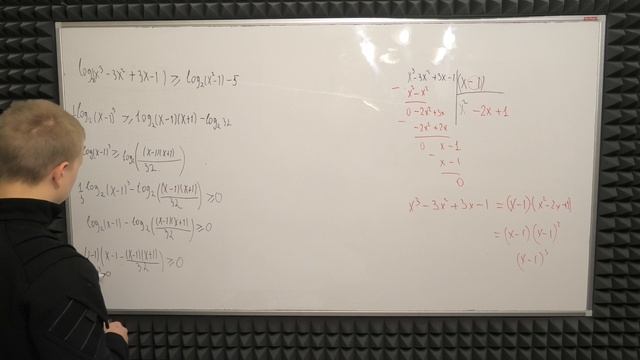 log₂(x³ - 3x² + 3x - 1) ≥ log₂(x² - 1) - 5
log₂(x-1)³ ≥ log₂(x-1)(x+1) - log₂ 32
log(x-1)³ ≥ log₂((x-1)(x+1)/32)
1/3 log₂(x-1)³ - log₂((x-1)(x+1)/32) ≥ 0
log₂(x-1) - log₂((x-1)(x+1)/32) ≥ 0
-1)(x-1 - (x-1)(x+1)/32) ≥ 0
>0
x³ - 3x² + 3x - 1 | (x-1)
- x³ - x² | x² - 2x + 1
0 - 2x² + 3x
- -2x² + 2x
0 x - 1
- x - 1
0
x³ - 3x² + 3x - 1 = (x-1)(x² - 2x + 1)
= (x-1)(x-1)²
(x-1)³